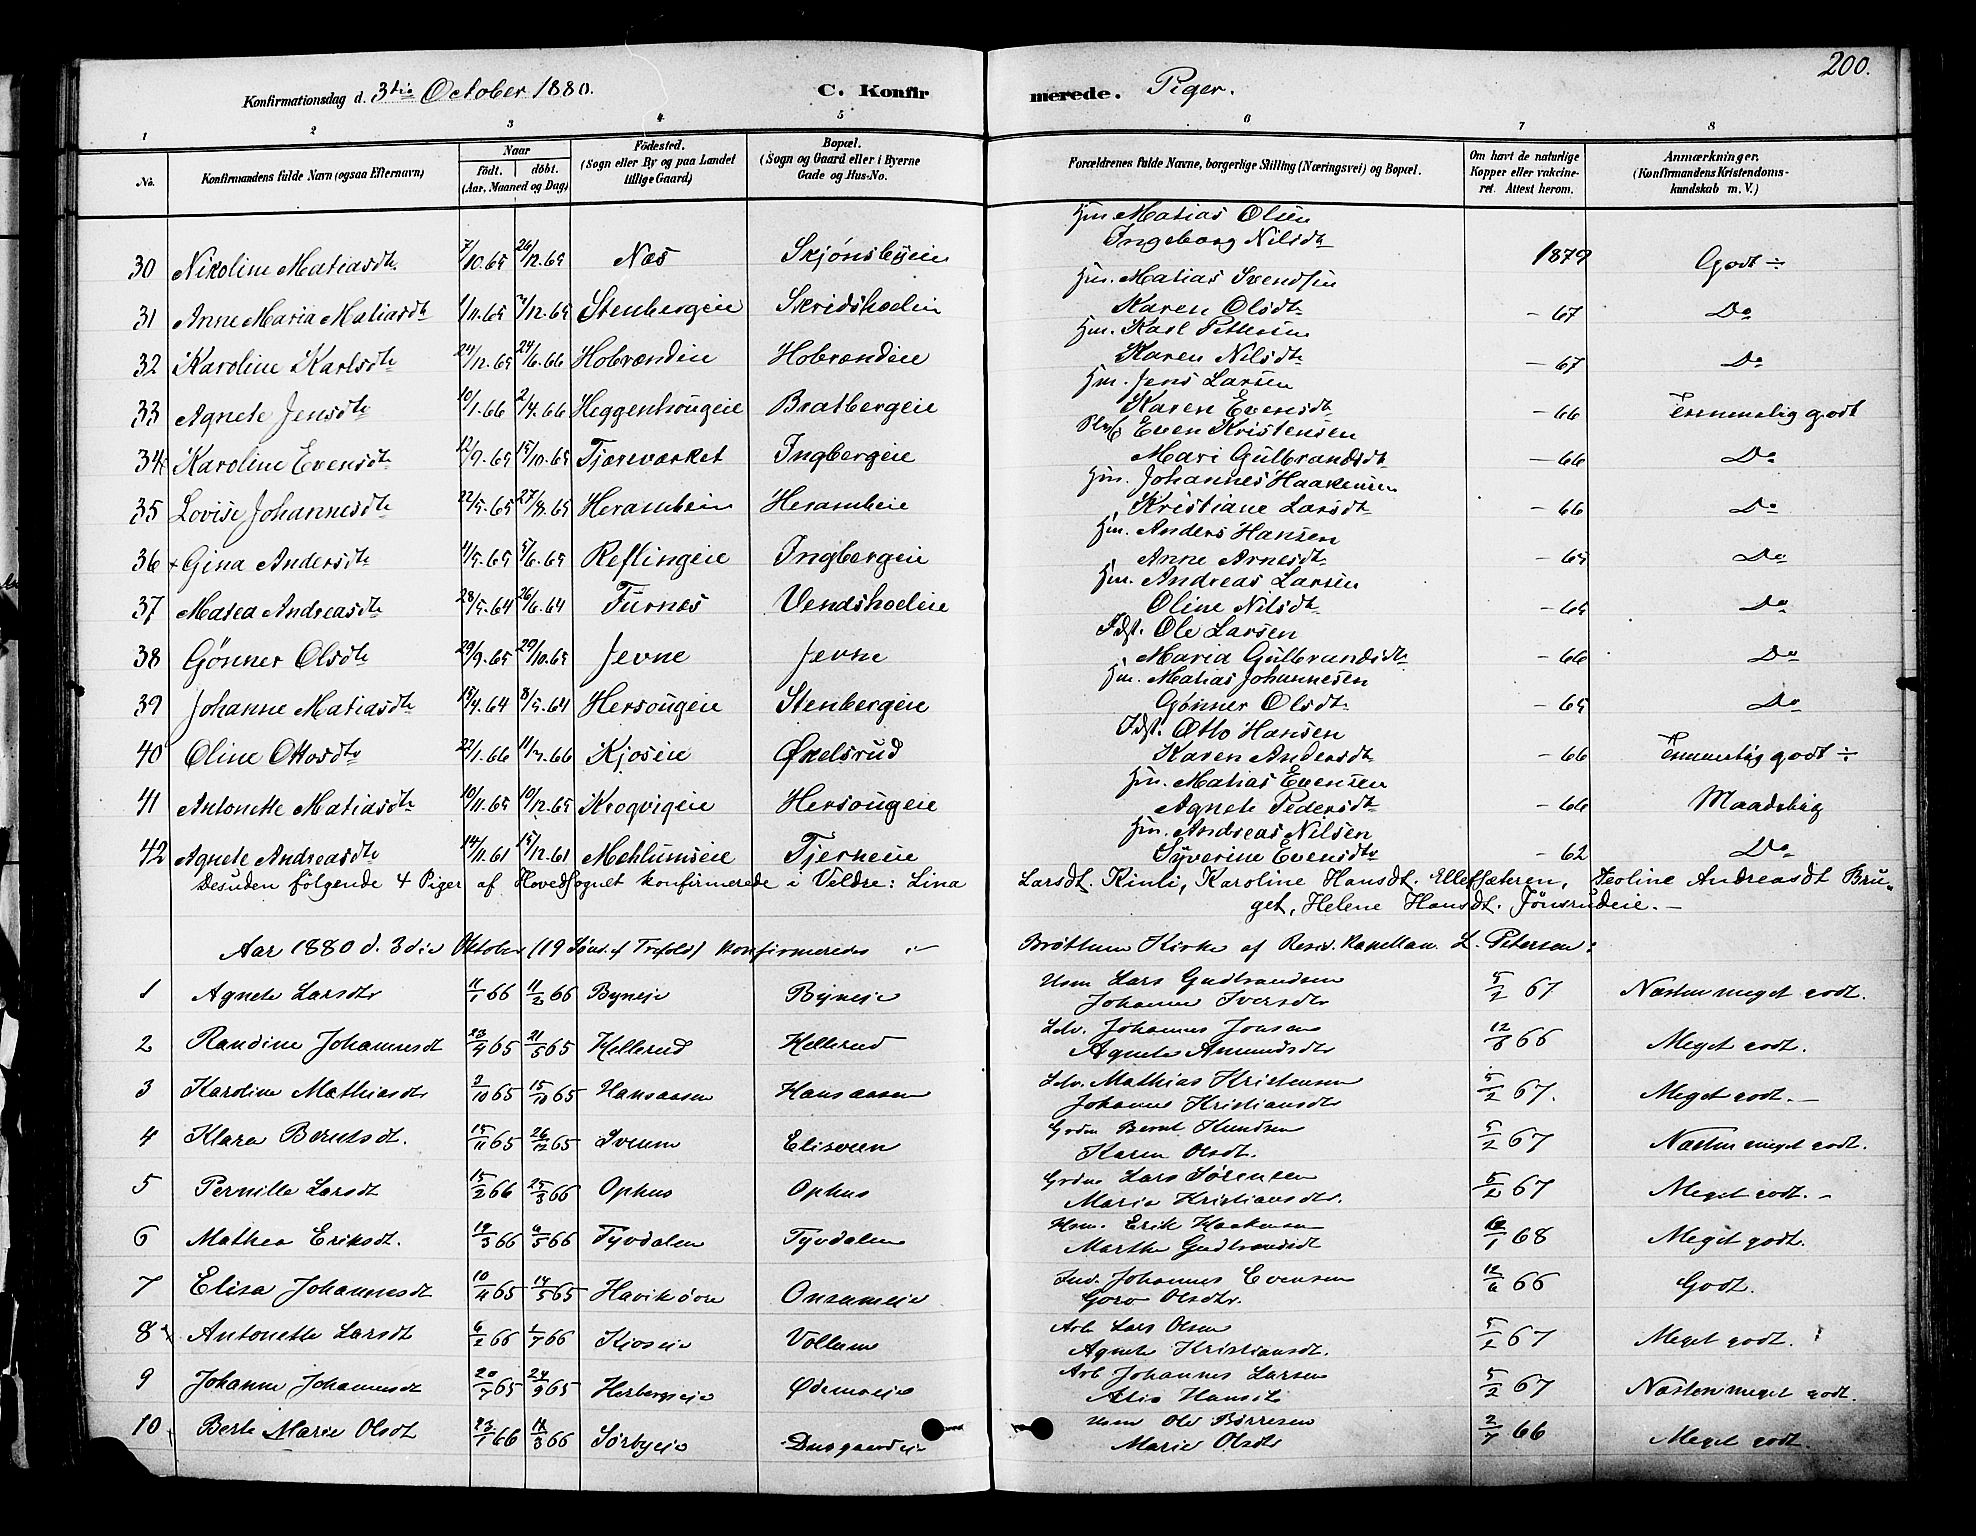 200.
Konfirmationsdag d. 3die October 1880. C. Konfirmerede. Piger.
1 2 3 4 5 6 7 8
No. Konfirmandens fulde Navn (ogsaa Efternavn) Naar født. døbt. (Aar, Maaned og Dag) Fødested. (Sogn eller By og paa Landet tillige Gaard) Bopæl. (Sogn og Gaard eller i Byerne Gade og Hus-No. Forældrenes fulde Navne, borgerlige Stilling (Næringsvei) og Bopæl. Om havt de naturlige Kopper eller vakcineret. Attest herom. Anmærkninger. (Konfirmandens Kristendomskundskab m. V.)
Hm Matias Olsen
30 Nikoline Matiasdtr. 7/10.65 26/12.65 Næs Skjønsbyeie Ingeborg Nilsdtr 1879 Godt ÷
Hm. Matias Svendsen
31 Anne Maria Matiasdtr 1/11.65 3/12.65 Stenbergeie Skridshoelen Karen Olsdtr - 67 Do
Hm. Karl Pettersen
32 Karoline Karlsdtr 24/12.65 24/6.66 Hobrændeie Hobrændeie Karen Nilsdtr - 67 Do
Hm. Jens Larsen
33 Agnete Jensdtr 10/1.66 2/4.66 Heggenhougeie Bratbergeie Karen Evensdtr - 66 Temmelig godt
Even Kristensen
34 Karoline Evensdtr 12/9.65 15/10.65 Tjæreværket Ingbergeie Mari Gulbrandsdtr - 66 Do
Hm. Johannes Haakensen
35 Lovise Johannesdtr 22/5.65 27/8.65 Herambeie Herambeie Kristiane Larsdtr - 66 Do
Hm. Anders Hansen
36 Gina Andersdtr 11/5.65 5/6.65 Reflingeie Ingbergeie Anne Arnesdtr - 65 Do
Hm. Andreas Larsen
37 Masea Andreasdtr 28/5.64 26/6.64 Furnæs Vendshoeleie Oline Nilsdtr - 65 Do
Idst. Ole Larsen
38 Gønner Olsdtr 29/9.65 29/10.65 Jevne Jevne Maria Gulbrandsdtr - 66 Do
Hm. Matias Johannesen
39 Johanne Matiasdtr 15/4.64 8/5.64 Hersougeie Stenbergeie Gønner Olsdtr - 65 Do
Idst. Otto Hansen
40 Oline Ottosdtr 22/1.66 11/3.66 Kjoseie Øxelsrud Karen Andersdtr - 66 Temmelig godt ÷
Hm. Matias Evensen
41 Antonette Matiasdtr 10/11.65 10/12.65 Krogvigeie Hersougeie Agnete Pedersdtr - 66 Maadelig
Hm. Andreas Nilsen
42 Agnete Andreasdtr 14/11.61 15/12.61 Mehlumseie Tjerneie Syverine Evensdtr - 62 Do
Desuden følgende 4 Piger af Hovedsognet konfirmerede i Veldre: Lina Larsdt. Kinli, Karoline Hansdt. Ellefsæteren, Teoline Andreasdt Bru-
get, Helene Hansdt. Jønsrudeie. -
Aar 1880 d. 3die Oktober (19 Sønd. e. Trefold.) konfirmeredes i Brøttum Kirke af Resid. Kapellan L. Petersen:
Hsm Lars Gudbrandsen
1 Agnete Larsdtr 11/1 66 11/3 66 Byneie Byneie Johanne Iversdtr 5/2 67 Næsten meget godt.
Selv. Johannes Jonsen
2 Randine Johannesdt 23/4 65 21/5 65 Hellerud Hellerud Agnete Amundsdtr 12/8 66 Meget godt.
Selv. Mathias Kristensen
3 Karoline Mathiasdtr 2/10 65 15/10 65 Hansaasen Hansaasen Johanne Kristiansdtr 5/2 67. Meget godt. -
Grdm Bernt Knudsen
4 Klara Berntsdt. 15/11 65 26/12 65 Sveum Elisveen Karen Olsdt. 5/2 67 Næsten meget godt.
Grdm Lars Sørensen
5 Pernille Larsdt 15/2 66 25/3 66 Ophus Ophus Marie Kristiansdtr. 5/2 67 Meget godt. -
Hsm. Erik Haakensen
6 Mathea Eriksdt. 19/3 66 6/5 66 Tyvdalen Tyvdalen Marthe Gudbrandsdt 10/1 68 Meget godt.
Ind. Johannes Evensen
7 Elisa Johannesdt 10/4 65 14/5 65 Havikøen Onsumeie Goro Olsdtr. 12/6 66 Godt.
Arb Lars Olsen
8 Antonette Larsdt 6/2 66 1/7 66 Kioseie Vollum Agnete Kristiansdt. 5/2 67 Meget godt.
Arb Johannes Larsen
9 Johanne Johannesdt 20/7 65 24/9 65 Herbergseie Ødemoeie 5/2 67 Næsten meget godt.
Hsm Ole Børresen
10 Berte Marie Olsdt 23/1 66 18/3 66 Sørbyeie Marie Olsdtr 2/7 66 Meget godt.